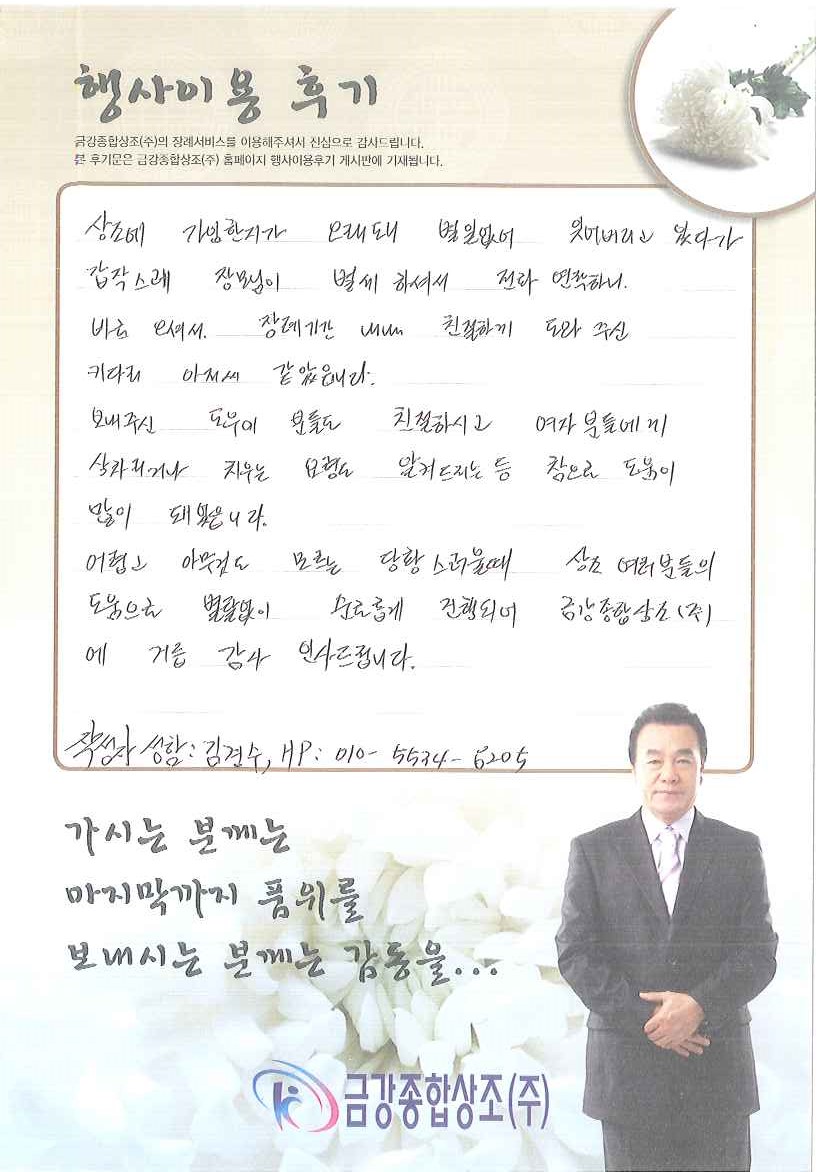 행사이용 후기
금강종합상조(주)의 장례서비스를 이용해주셔서 진심으로 감사드립니다.
본 후기문은 금강종합상조(주) 홈페이지 행사이용후기 게시판에 기재됩니다.
상조에 가입한지가 오래돼 별일없어 잊어버리고 있다가
갑작스레 장모님이 별세 하셔서 전화 연락하니.
바로 오셔서. 장례기간 내내 친절하게 도와 주신
키다리 아저씨 같았읍니다.
보내주신 도우미 분들도 친절하시고 여자분들에게
상차리거나 치우는 요령도 알켜드리는 등 참으로 도움이
많이 돼 읍니다.
어렵고 아무것도 모르는 당황스러울때 상조 여러분들의
도움으로 별탈없이 순조롭게 진행되어 금강종합상조(주)
에 거듭 감사 인사드립니다.
작성자 성함: 김전수, HP: 010- 5534-6205
가시는 분께는
마지막까지 품위를
보내시는 분께는 감동을...
금강종합상조(주)